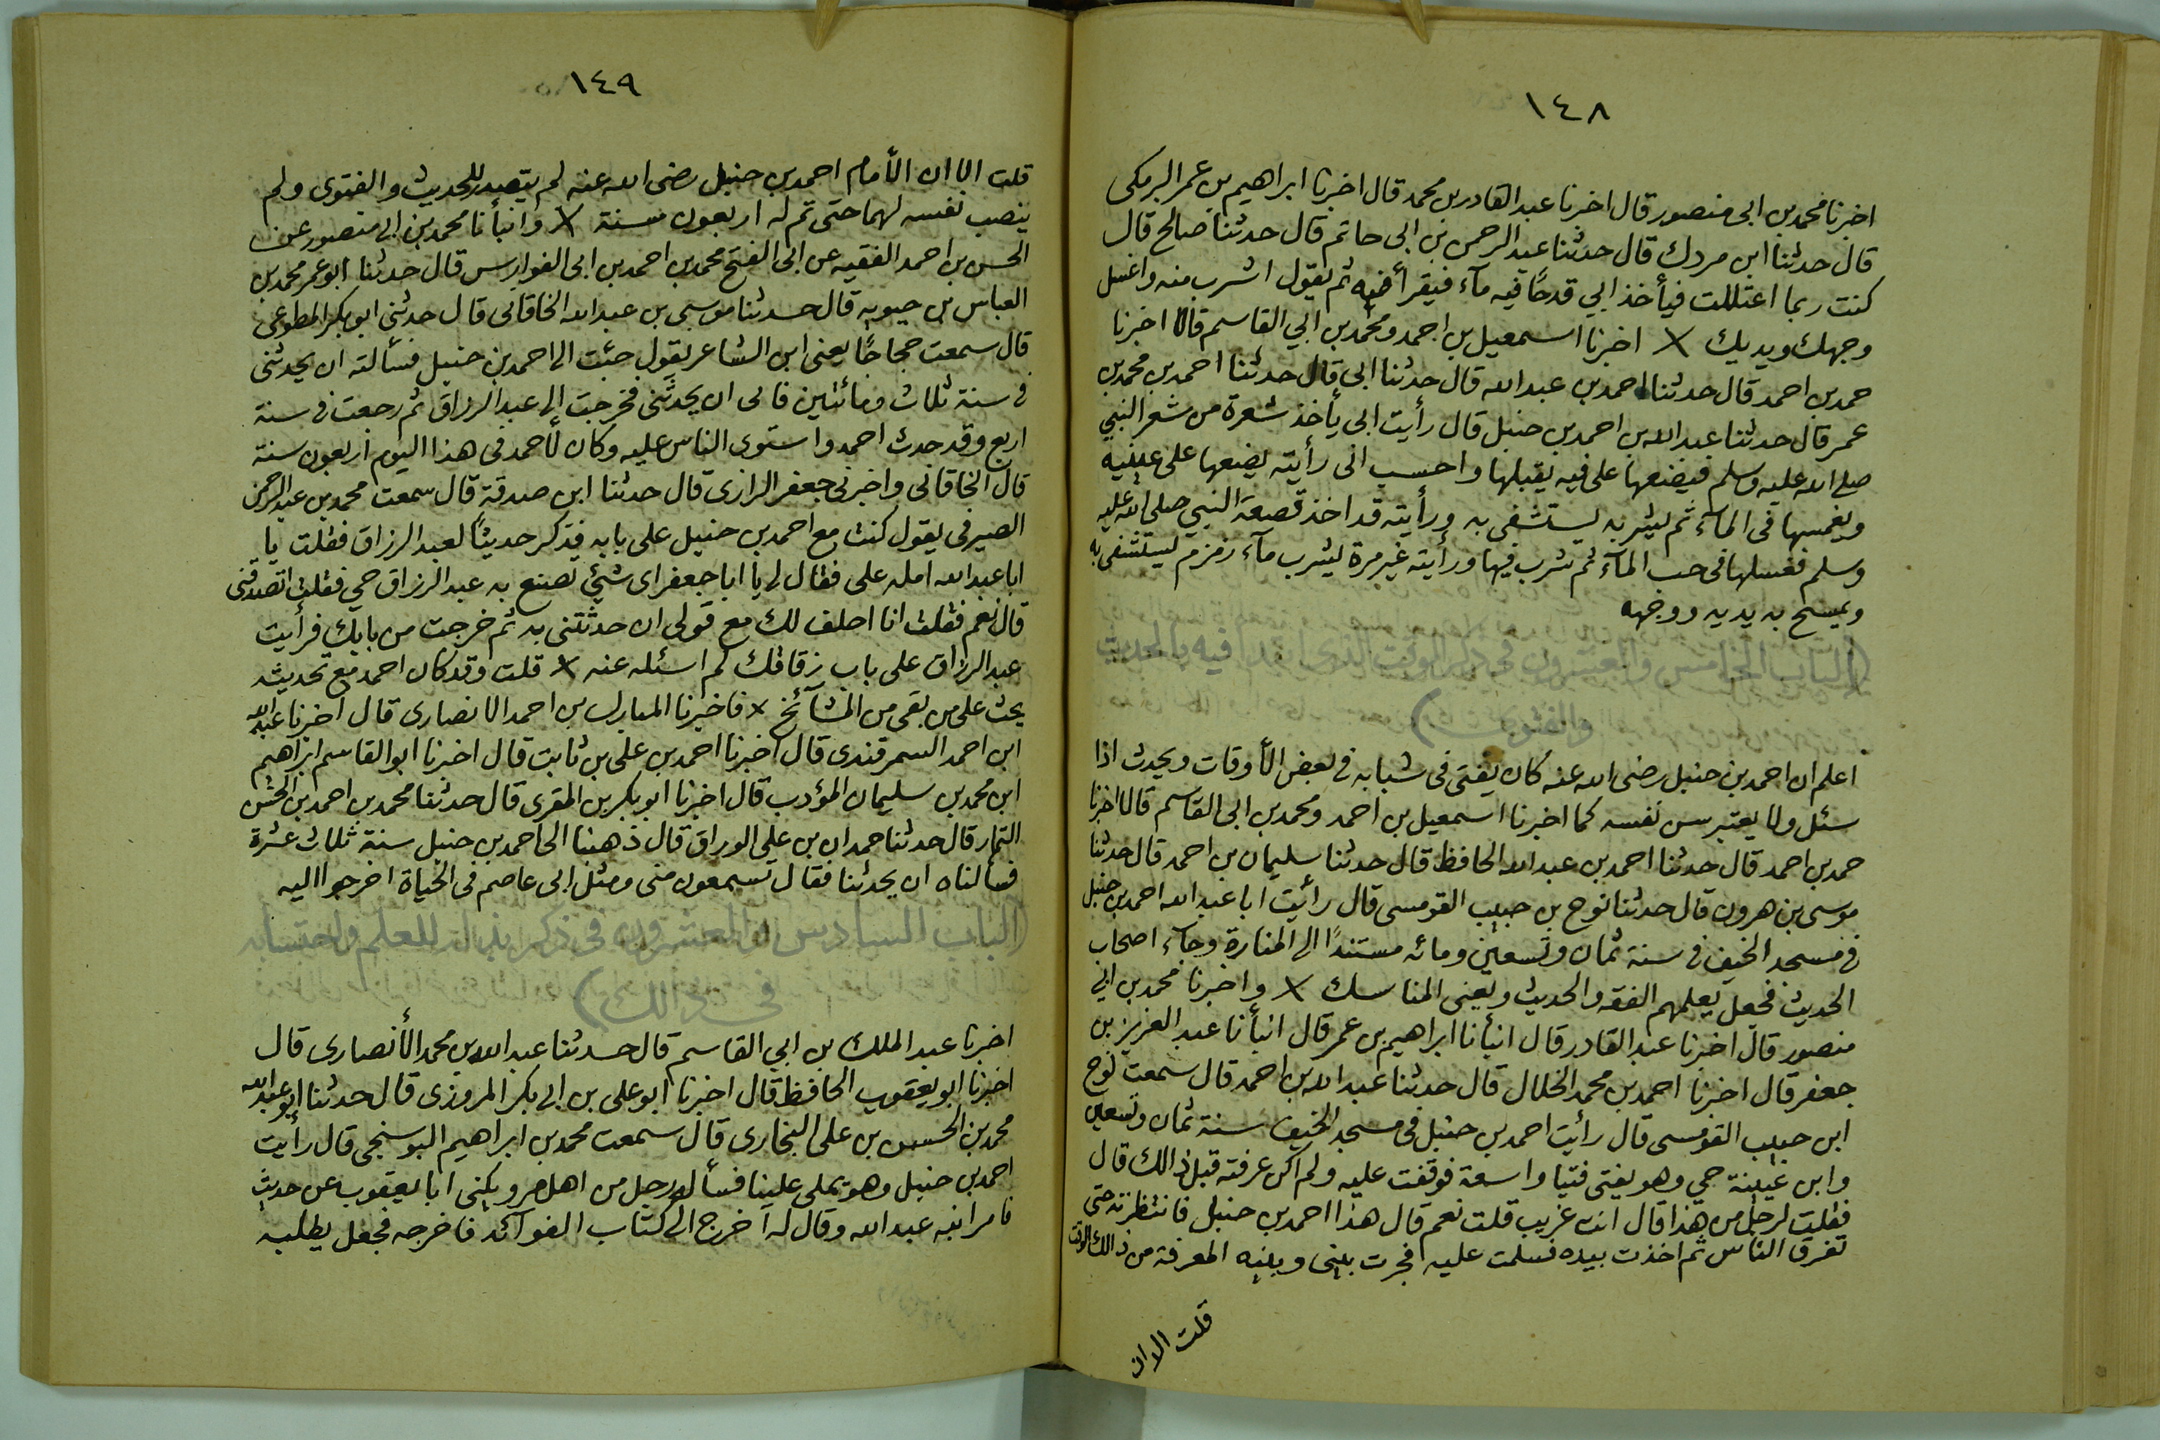 ١٤٨
اخبرنا محمد بن ابى منصور قال اخبرنا عبد القادر بن محمد قال اخبرنا ابراهيم بن عمر البرمكى
قال حدثنا ابن مردك قال حدثنا عبد الرحمن بن ابى حاتم قال حدثنا صالح قال
كنت ربما اعتللت فيأخذ ابي قدحًا فيه مآء فيقرأ فيه ثم يقول اشرب منه واغسل
وجهك ويديك X اخبرنا اسمعيل بن احمد ومحمد بن ابي القاسم قالا اخبرنا
حمد بن احمد قال حدثنا احمد بن عبد الله قال حدثنا ابي قال حدثنا احمد بن محمد بن
عمر قال حدثنا عبد الله بن احمد بن حنبل قال رأيت ابى يأخذ شعرة من شعر النبي
صلى الله عليه وسلم فيضعها على فيه يقبلها واحسب انى رأيته يضعها على عينيه
ويغمسها فى المآء ثم يشربه يستشفى به ورأيته قد اخذ قصعة النبي صلى الله عليه
وسلم فغسلها فى حب المآء ثم شرب فيها ورأيته غير مرة يشرب مآء زمزم ليستشفى به
ويمسح به يديه ووجهه
(الباب الخامس والعشرون فى ذكر الوقت الذى ابتدا فيه بالحديث
والفتوى)
اعلم ان احمد بن حنبل رضى الله عنه كان يفتى فى شبابه فى بعض الأوقات ويحدث اذا
سئل ولا يعتبر سن نفسه كما اخبرنا اسمعيل بن احمد ومحمد بن ابى القاسم قالا اخبرنا
حمد بن احمد قال حدثنا احمد بن عبد الله الحافظ قال حدثنا سليمان بن احمد قال حدثنا
موسى بن هرون قال حدثنا نوح بن حبيب القومسى قال رائيت ابا عبد الله احمد بن حنبل
فى مسجد الخيف فى سنة ثمان وتسعين ومائه مستندًا الى المنارة وجآء اصحاب
الحديث فجعل يعلمهم الفقه والحديث ويفتى المناسك X واخبرنا محمد بن ابي
منصور قال اخبرنا عبد القادر قال انبأنا ابراهيم بن عمر قال انبأنا عبد العزيز بن
جعفر قال اخبرنا احمد بن محمد الخلال قال حدثنا عبد الله بن احمد قال سمعت نوح
ابن حبيب القومسى قال رائيت احمد بن حنبل فى مسجد الخيف سنة ثمان وتسعين
وابن عيينة حي وهو يفتى فتيا واسعة فوقفت عليه ولم اكن عرفته قبل ذالك قال
فقلت لرجل من هذا قال انت غريب قلت نعم قال هذا احمد بن حنبل فانتظرته حتى
تفرق الناس ثم اخذت بيده فسلمت عليه فجرت بينى وبينه المعرفة من ذالك الوقت
قلت الا ان
١٤٩
قلت الا ان الأمام احمد بن حنبل رضى الله عنه لم يتصدر للحديث والفتوى ولم
ينصب نفسه لهما حتى تم له اربعون سنة X وانبأنا محمد بن ابى منصور عن
الحسن بن احمد الفقيه عن ابى الفتح محمد بن احمد بن ابى الفوارس قال حدثنا ابو عمر محمد بن
العباس بن حيويه قال حدثنا موسى بن عبد الله الخاقانى قال حدثنى ابو بكر المطوعى
قال سمعت حجاجًا يعنى ابن الشاعر يقول جئت الى احمد بن حنبل فسألته ان يحدثنى
فى سنة ثلاث ومائتين فابى ان يحدثنى فخرجت الى عبد الرزاق ثم رجعت فى سنة
اربع وقد حدث احمد واستوى الناس عليه وكان لأحمد فى هذا اليوم اربعون سنة
قال الخاقانى واخبرنى جعفر الرازى قال حدثنا ابن صدقة قال سمعت محمد بن عبد الرحمن
الصيرفى يقول كنت مع احمد بن حنبل على بابه فذكر حديثًا لعبد الرزاق فقلت يا
ابا عبد الله امله على فقال لى يا ابا جعفر اى شئ تصنع به عبد الرزاق حي فقلت اتصدقنى
قال نعم فقلت انا احلف لك مع قولى ان حدثتنى به ثم خرجت من بابك فرأيت
عبد الرزاق على باب زقاقك لم اسئله عنه X قلت وقد كان احمد مع تحديثه
يحث على من بقى من المشآئخ X فاخبرنا المبارك بن احمد الانصارى قال اخبرنا عبد الله
ابن احمد السمرقندى قال اخبرنا احمد بن على بن ثابت قال اخبرنا ابو القاسم ابراهيم
ابن محمد بن سليمان المؤدب قال اخبرنا ابو بكر بن المقرى قال حدثنا محمد بن احمد بن الحسن
التمار قال حدثنا حمدان بن على الوراق قال ذهبنا الى احمد بن حنبل سنة ثلاث عشرة
فسألناه ان يحدثنا فقال تسمعون منى ومثل ابى عاصم فى الحياة اخرجوا اليه
(الباب السادس والعشرون فى ذكر بذله للعلم واحتسابه
فى ذالك)
اخبرنا عبد الملك بن ابي القاسم قال حدثنا عبد الله بن محمد الأنصارى قال
اخبرنا ابو يعقوب الحافظ قال اخبرنا ابو على بن ابى بكر المروزى قال حدثنا ابو عبد الله
محمد بن الحسن بن على البخارى قال سمعت محمد بن ابراهيم البوسنجى قال رأيت
احمد بن حنبل وهو يملى علينا فسأله رجل من اهل مرو يكنى ابا يعقوب عن حديث
فامر ابنه عبد الله وقال له اخرج الى كتاب الفوآئد فاخرجه فجعل يطلبه